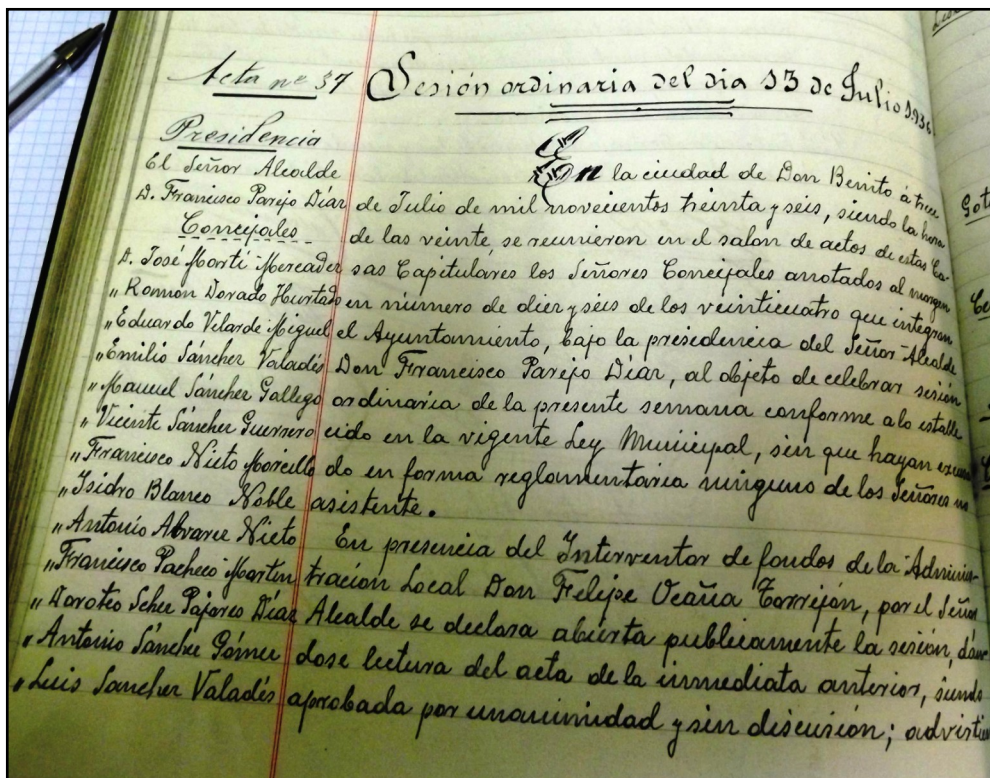 Acta nº 37 Sesión ordinaria del dia 13 de Julio 1936
Presidencia
El Señor Alcalde
D. Francisco Parejo Díaz
Concejales
D. José Martí Mercader
" Román Dorado Hurtado
" Eduardo Velarde Miguel
" Emilio Sánchez Valadés
" Manuel Sánchez Gallego
" Vicente Sánchez Guerrero
" Francisco Nieto Morcillo
" Isidro Blanco Noble
" Antonio Alvarez Nieto
" Francisco Pacheco Martin
" Doroteo Pajares Díaz
" Antonio Sánchez Gómez
" Luis Sanchez Valadés
En la ciudad de Don Benito á trece
de Julio de mil novecientos treinta y seis, siendo la hora
de las veinte se reunieron en el salon de actos de estas Ca
sas Capitulares los Señores Concejales anotados al margen
en número de diez y seis de los veinticuatro que integran
el Ayuntamiento, bajo la presidencia del Señor Alcalde
Don Francisco Parejo Díaz, al objeto de celebrar sesión
ordinaria de la presente semana conforme a lo estable
cido en la vigente Ley Municipal, sin que hayan excusa
do en forma reglamentaria ninguno de los Señores no
asistente.
En presencia del Interventor de fondos de la Adminis-
tración Local Don Felipe Ocaña Torrejón, por el Señor
Alcalde se declara abierta publicamente la sesión, dán-
dose lectura del acta de la inmediata anterior, siendo
aprobada por unanimidad y sin discusión; advirtien